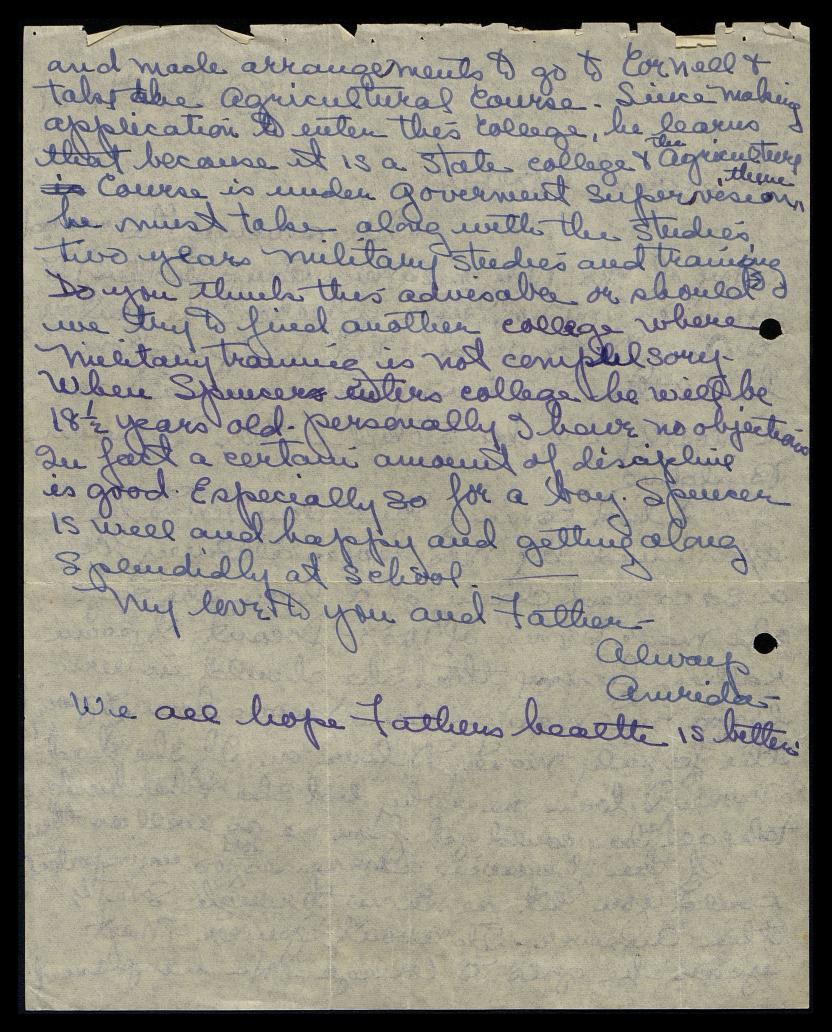 and made arrangements to go to Cornell &
take the Agricultural Course. Since making
application to enter this college, he learns
that because it is a State college & the Agriculture
is Course is under goverment supervision,
he must take along with the Studies,
two years military studies and training
Do you think this advisable or should
we try to find another college where
military training is not complulsory.
When Spencer enters college he will be
18½ years old. personally I have no objections
In fact a certain amount of discipline
is good. Especially so for a boy. Spencer
is well and happy and getting along
Splendidly at school.
My love to you and Father -
Always
Amrida -
We all hope Fathers health is better.